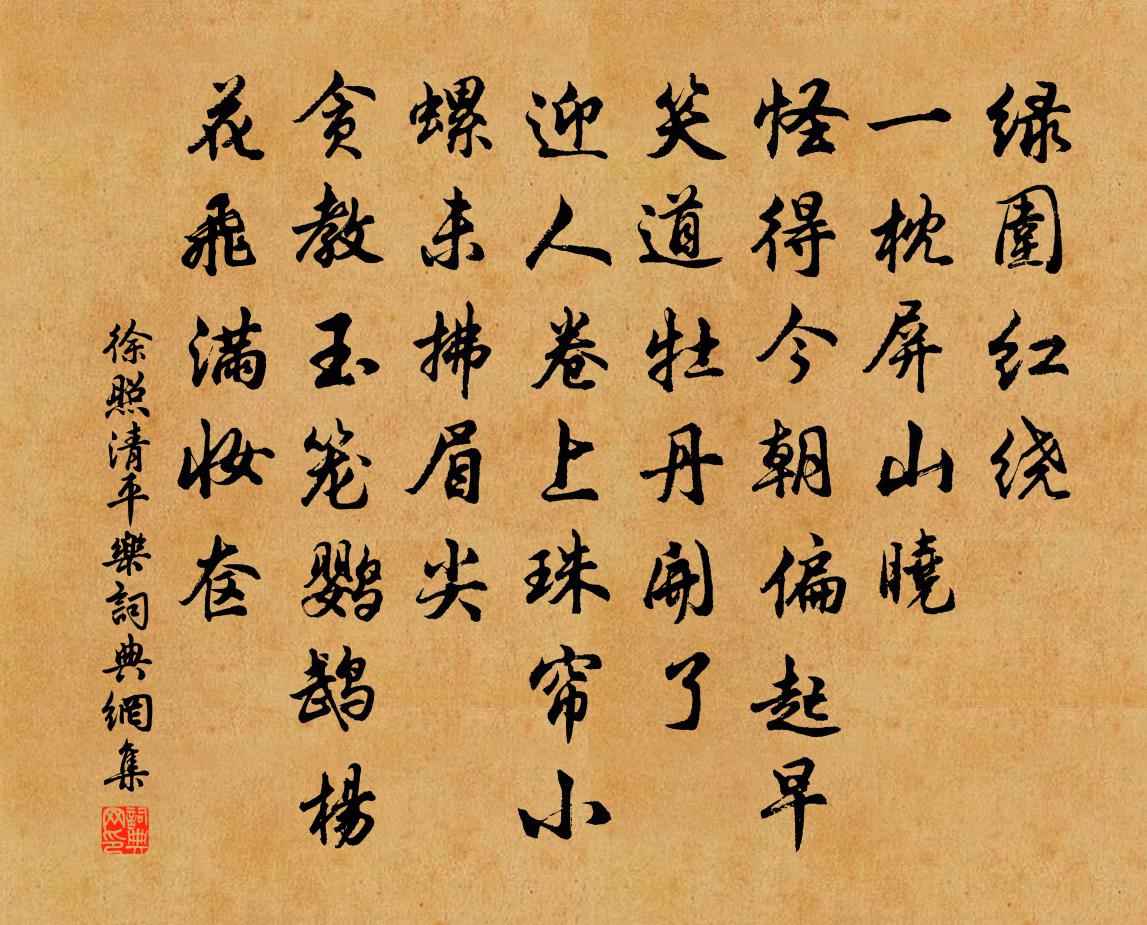 绿圍红绕
一枕屏山曉
怪得今朝偏起早
笑道牡丹開了
迎人卷上珠帘小
螺未拂眉尖
贪教玉笼鹦鹉楊
花飛满妆奁
徐照清平樂詞典網集
詞典网印